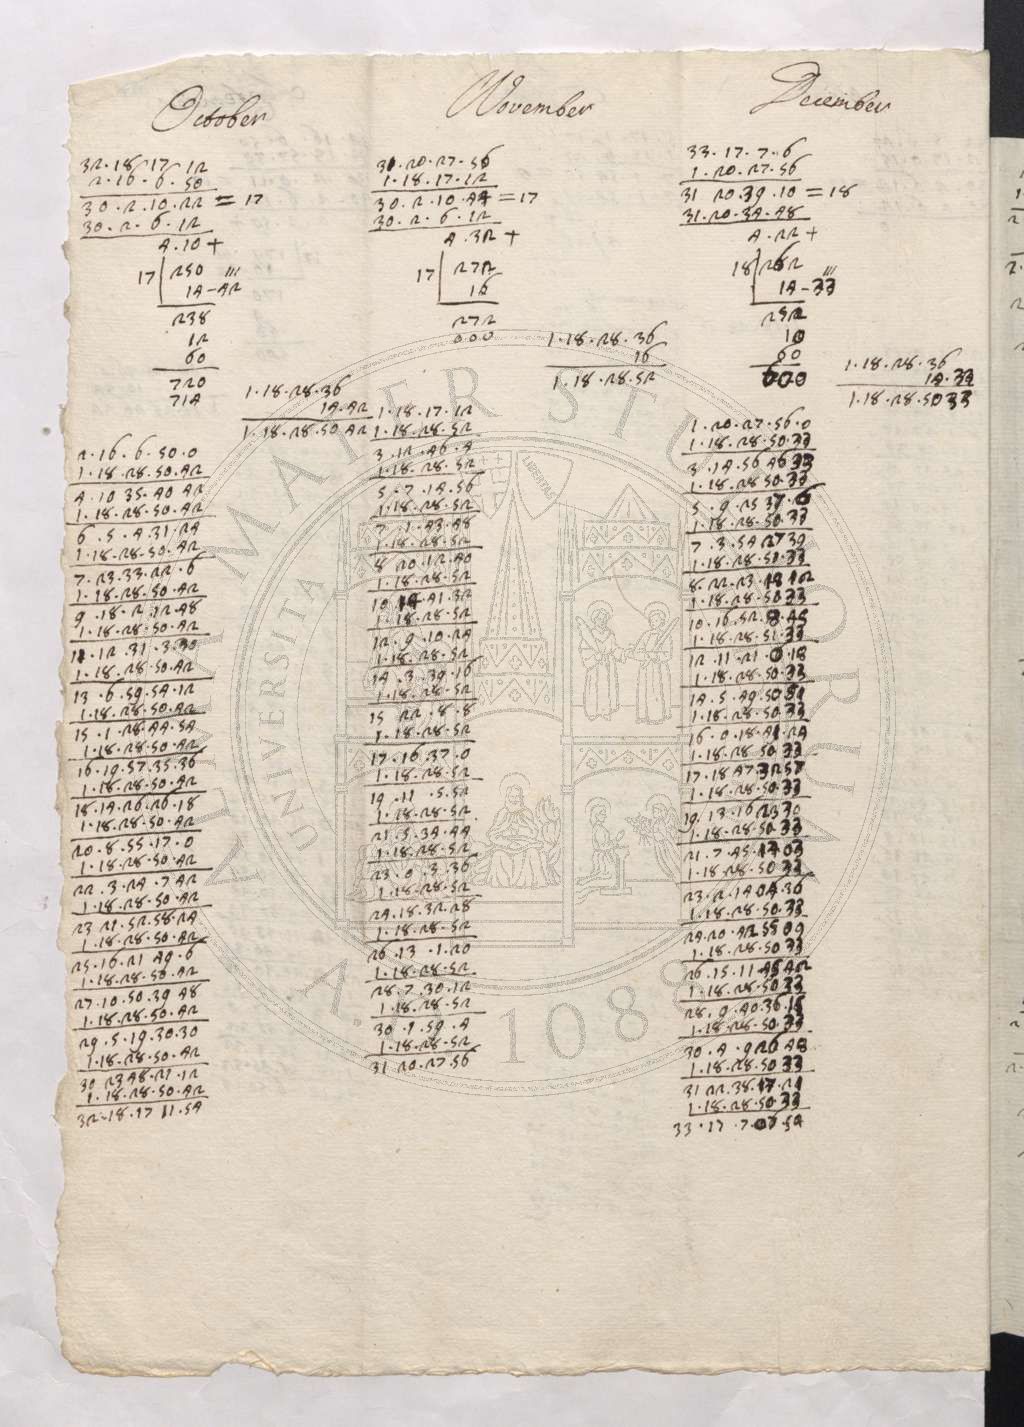 October
32.18.17.12
2.16.6.50
30.2.10.22 = 17
30.2.6.12
4.10 +
17 250 '''
14-42
238
12
60
720
714
1.18.28.36
14.42
1.18.28.50.42
2.16.6.50.0
1.18.28.50.42
4.10.35.40.42
1.18.28.50.42
6.5.4.31.24
1.18.28.50.42
7.23.33.22.6
1.18.28.50.42
9.18.2.12.48
1.18.28.50.42
11.12.31.3.30
1.18.28.50.42
13.6.59.54.12
1.18.28.50.42
15.1.28.44.54
1.18.28.50.42
16.19.57.35.36
1.18.28.50.42
18.14.26.26.18
1.18.28.50.42
20.8.55.17.0
1.18.28.50.42
22.3.24.7.42
1.18.28.50.42
23.21.52.58.24
1.18.28.50.42
25.16.21.49.6
1.18.28.50.42
27.10.50.39.48
1.18.28.50.42
29.5.19.30.30
1.18.28.50.42
30.23.48.21.12
1.18.28.50.42
32.18.17.11.54
November
31.20.27.56
1.18.17.12
30.2.10.44 = 17
30.2.6.12
4.32 +
17 272
16
272
000
1.18.28.36
16
1.18.28.52
1.18.17.12
1.18.28.52
3.12.46.4
1.18.28.52
5.7.14.56
1.18.28.52
7.1.43.48
1.18.28.52
8.20.12.40
1.18.28.52
10.14.41.32
1.18.28.52
12.9.10.24
1.18.28.52
14.3.39.16
1.18.28.52
15.22.8.8
1.18.28.52
17.16.37.0
1.18.28.52
19.11.5.52
1.18.28.52
21.5.34.44
1.18.28.52
23.0.3.36
1.18.28.52
24.18.32.28
1.18.28.52
26.13.1.20
1.18.28.52
28.7.30.12
1.18.28.52
30.1.59.4
1.18.28.52
31.20.27.56
December
33.17.7.6
1.20.27.56
31 20.39.10 = 18
31.20.34.48
4.22 +
18 262 '''
14-33
252
10
60
000
1.18.28.36
14.33
1.18.28.50 33
1.20.27.56.0
1.18.28.50.33
3.14.56 46 33
1.18.28.50.33
5.9.25 37.6
1.18.28.50.33
7.3.54 27 39
1.18.28.51.33
8.22.23.18 12
1.18.28.50 33
10.16.52.8.45
1.18.28.51.33
12.11.21.0.18
1.18.28.50.33
14.5.49.50 51
1.18.28.50.33
16.0.18.41.24
1.18.28 50.33
17.18 47 32 57
1.18.28.50.33
19.13.16 23 30
1.18.28.50.33
21.7.45.14 03
1.18.28.50 33
23.2.14 04 36
1.18.28.50.33
24 20.42 55 09
1.18.28.50 33
26.15.11 45 42
1.18.28.50 33
28.9.40.36.15
1.18.28.50.33
30.4.9 26 48
1.18.28.50 33
31 22.38.17.21
1.18.28.50 33
33.17.7.07.54
ALMA MATER STUDIORUM
UNIVERSITA
A.D. 1088